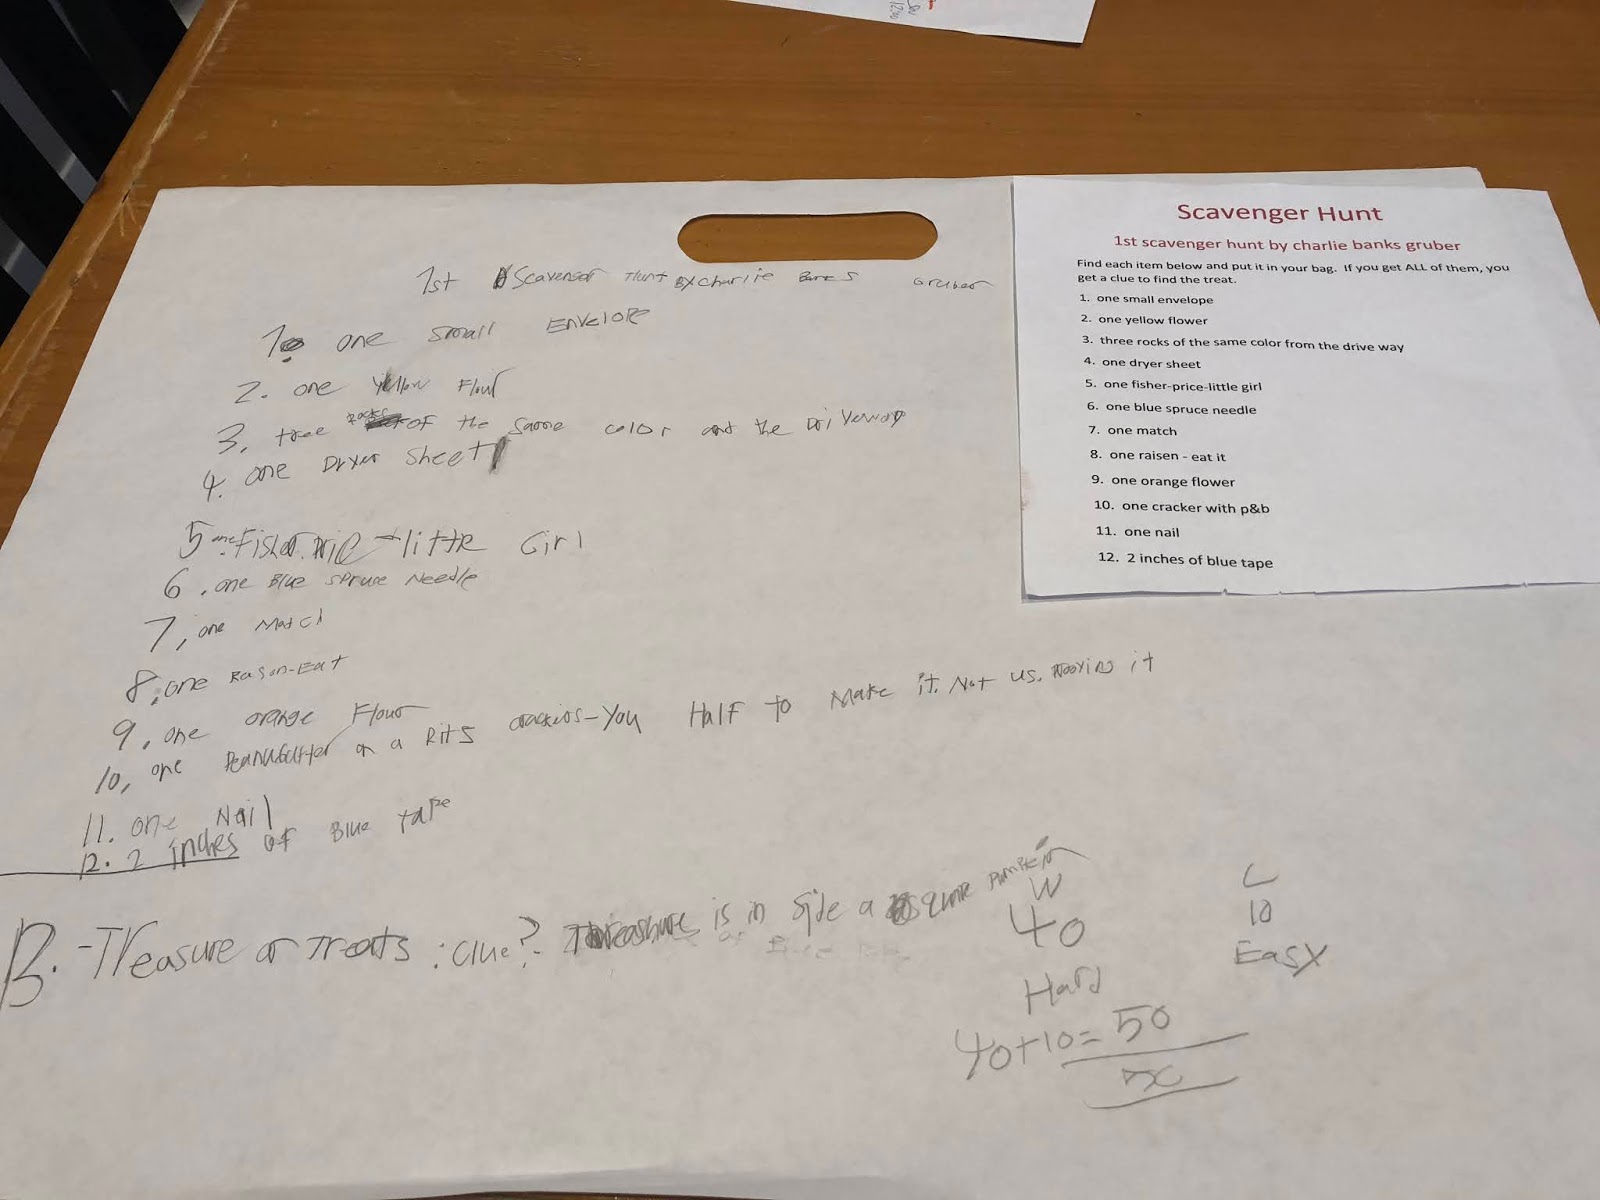 1st Scavenger Hunt By Charlie Banks Gruber
1. one small Envelope
2. one yellow Flour
3. tree rocks of the same color and the Driveway
4. one Dryer sheet
5. one Fisher Pric-little Girl
6. one Blue spruse Needle
7, one Match
8. one Rason-Eat
9, one orange Flour
10, one Peanutbutter on a Rits crackirs-You Half to Make it. Not us. it
11. one Nail
12. 2 inches of Blue tape
B. -Treasure or Treats : Clue? Threashure is in side a
W
40
Hard
C
10
Easy
40+10=50
Scavenger Hunt
1st scavenger hunt by charlie banks gruber
Find each item below and put it in your bag. If you get ALL of them, you
get a clue to find the treat.
1. one small envelope
2. one yellow flower
3. three rocks of the same color from the drive way
4. one dryer sheet
5. one fisher-price-little girl
6. one blue spruce needle
7. one match
8. one raisen - eat it
9. one orange flower
10. one cracker with p&b
11. one nail
12. 2 inches of blue tape